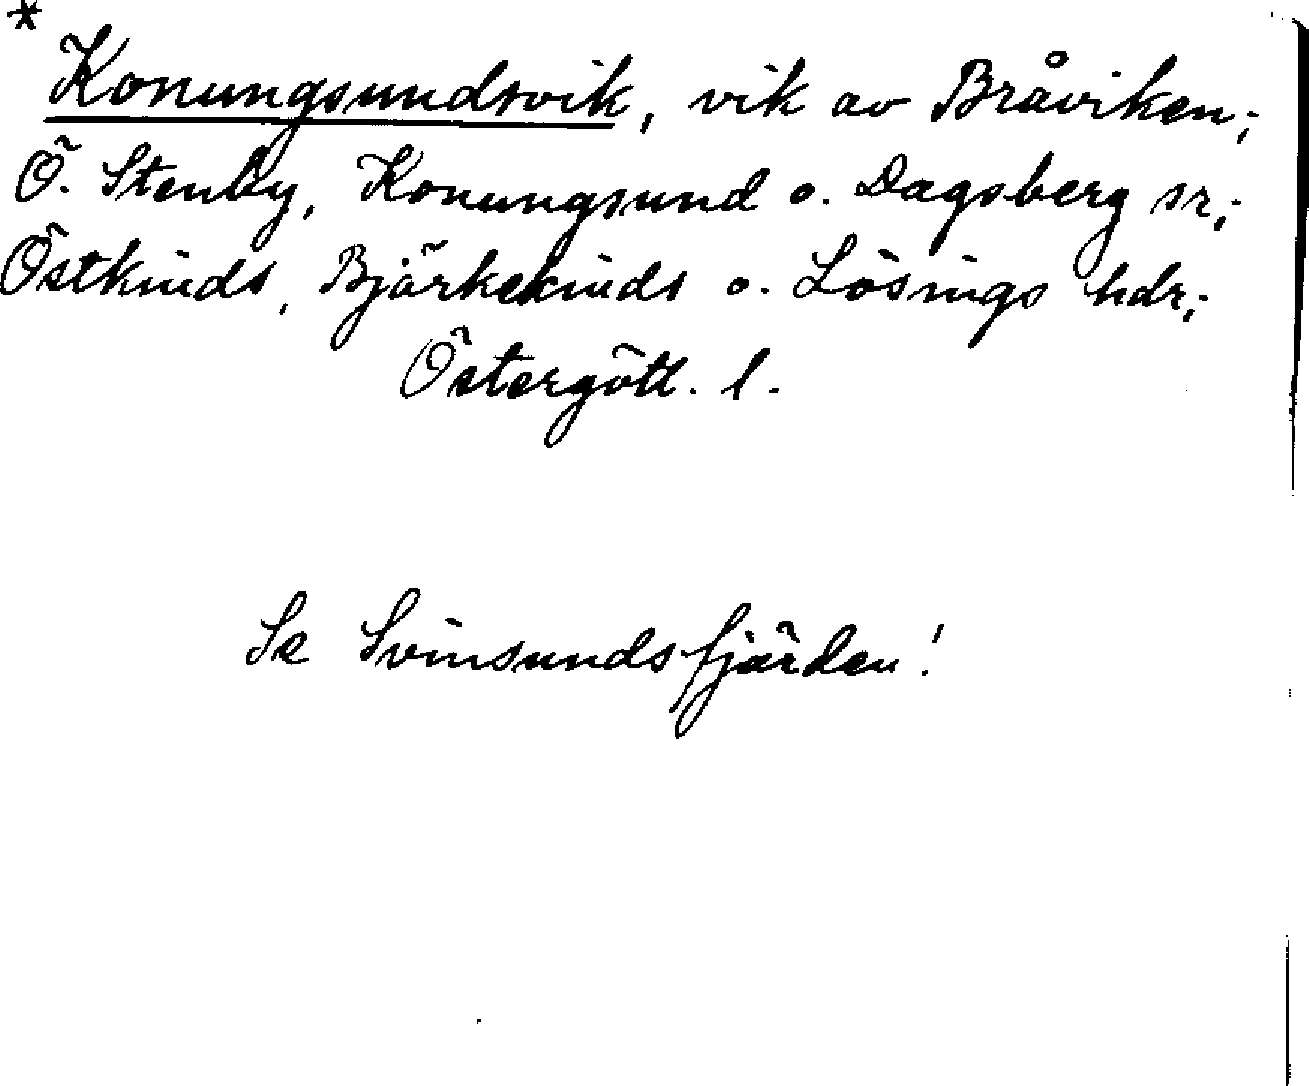 *
Konungsundsvik, vik av Bråviken;
Ö. Stenby, Konungsund o. Dagsberg snr;
Östkinds, Björkekinds o. Lösings hdr;
Östergötl. l.
Se Svinsundsfjärden!